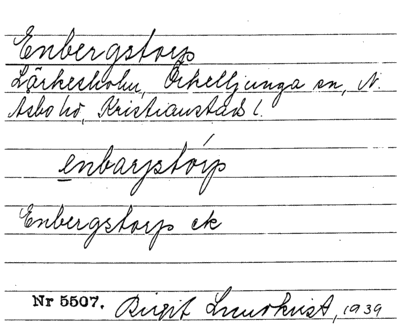 Enbergstorp
Lärkesholm, Örkelljunga sn, N.
Åsbo hd, Kristianstads l.
enbarjstórp
Enbergstorp ek
Nr 5507. Birgit Lundkvist, 1939